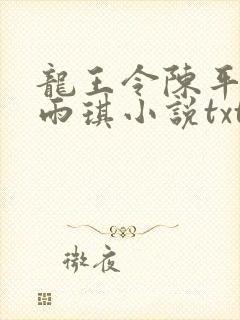 龍王令陳平
雨琪小説txt
微夜